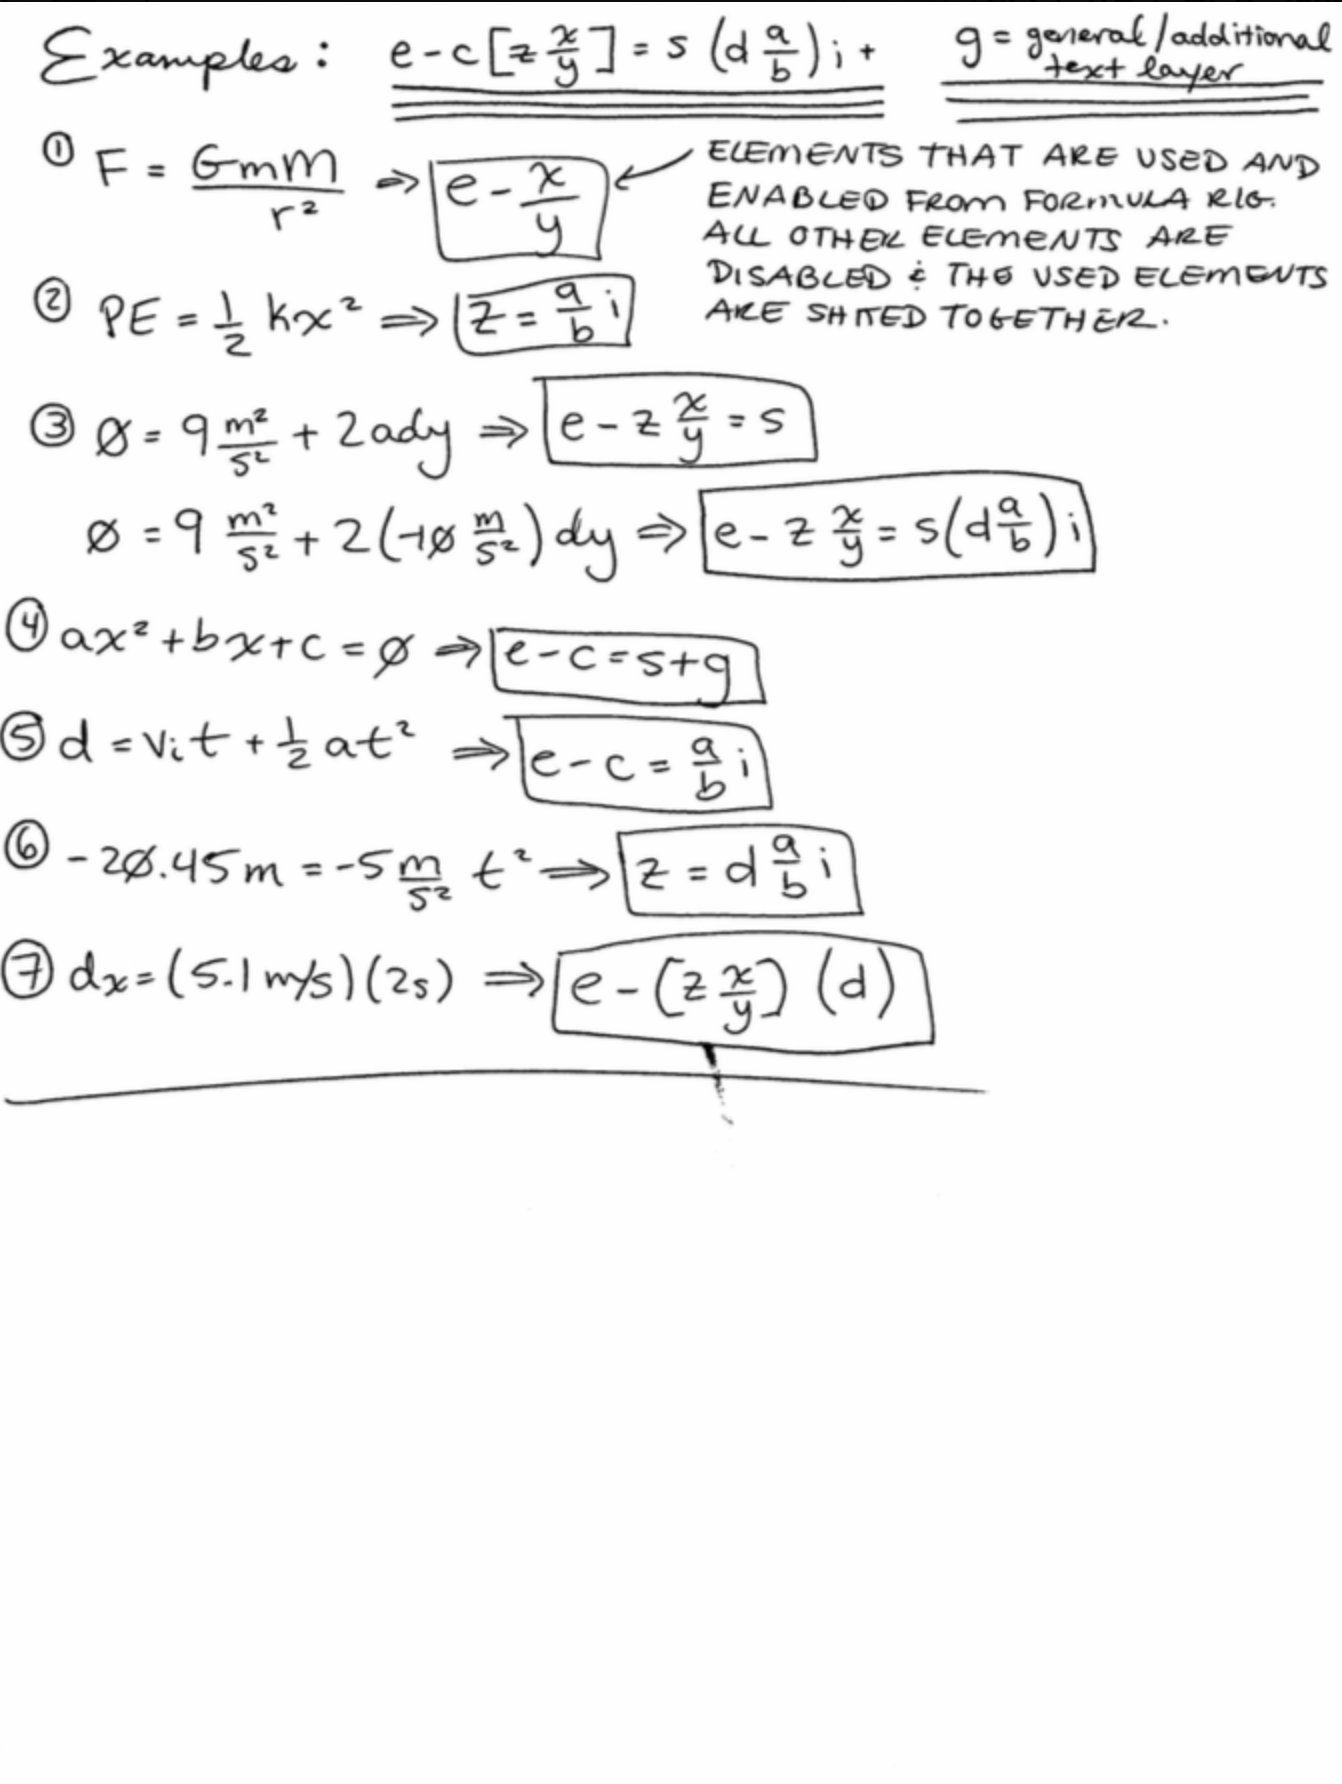 Examples: e-c[z x/y] = s (d a/b) i + g = general/additional text layer
① F = GmM/r² ⇒ e - x/y
ELEMENTS THAT ARE USED AND
ENABLED FROM FORMULA RIG.
ALL OTHER ELEMENTS ARE
DISABLED & THE USED ELEMENTS
ARE SHITED TOGETHER.
② PE = 1/2 kx² ⇒ z = a/b i
③ Ø = 9 m²/s² + 2ady ⇒ e - z x/y = s
Ø = 9 m²/s² + 2(-10 m/s²) dy ⇒ e - z x/y = s(d a/b) i
④ ax² + bx + c = Ø ⇒ e - c = s + g
⑤ d = vᵢt + 1/2 at² ⇒ e - c = a/b i
⑥ -2Ø.45m = -5 m/s² t² ⇒ z = d a/b i
⑦ dx = (5.1 m/s)(2s) ⇒ e - [z x/y] (d)